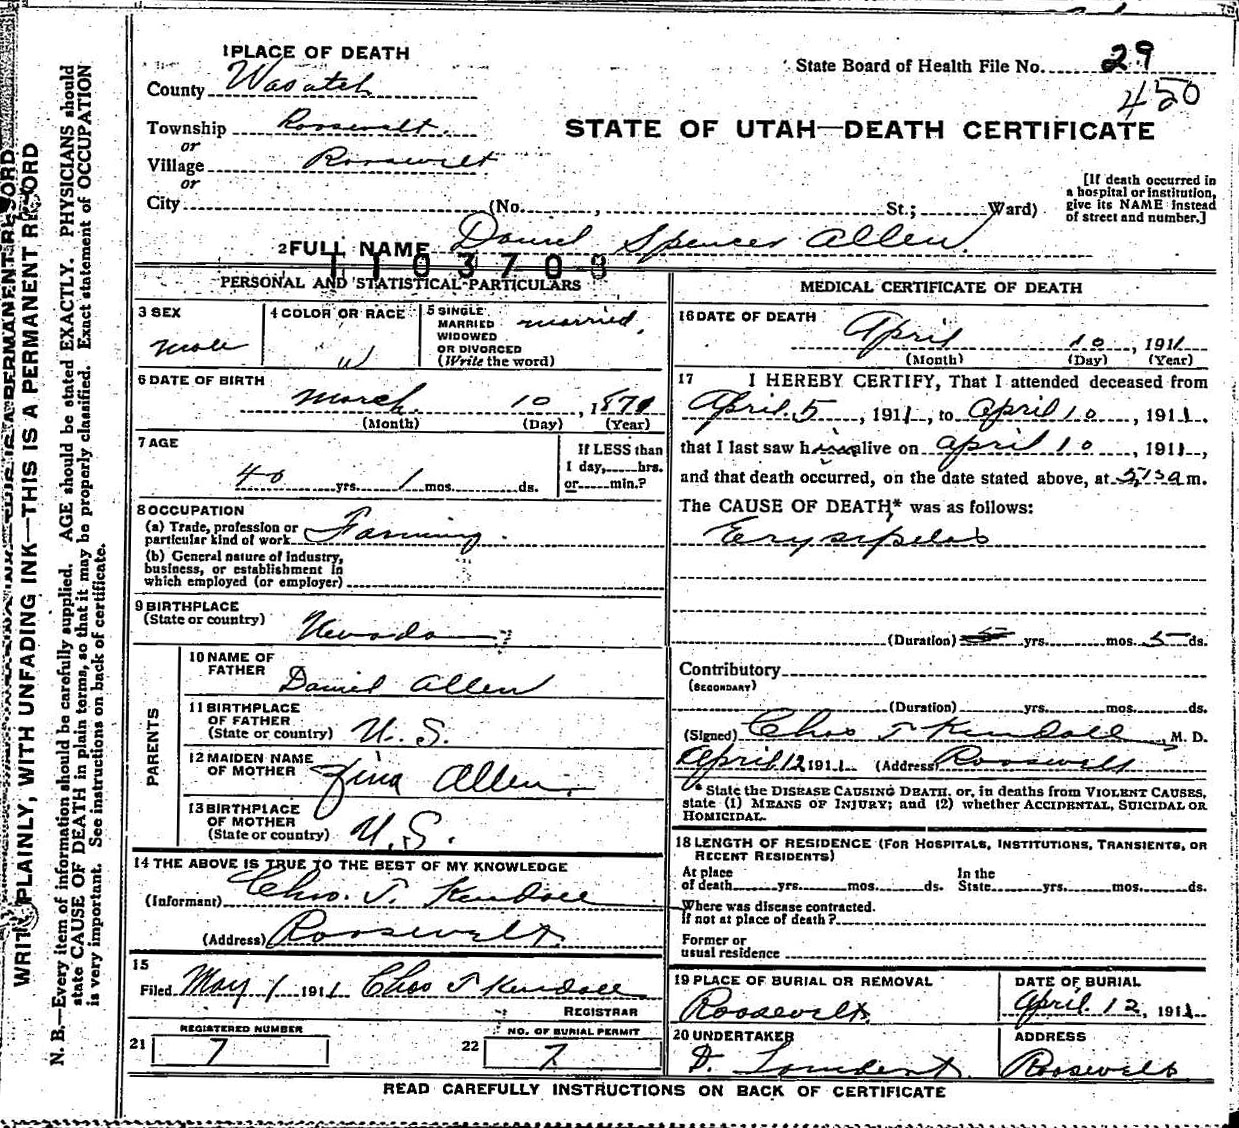 1 PLACE OF DEATH
County Wasatch
Township Roosevelt
or
Village Roosevelt
or
City (No. , St.; Ward)
State Board of Health File No. 29
450
STATE OF UTAH—DEATH CERTIFICATE
[If death occurred in
a hospital or institution,
give its NAME instead
of street and number.]
2 FULL NAME Daniel Spencer Allen.
1103708
PERSONAL AND STATISTICAL PARTICULARS
3 SEX
Male
4 COLOR OR RACE
W
5 SINGLE
MARRIED
WIDOWED
OR DIVORCED
(Write the word)
married.
6 DATE OF BIRTH
March 10, 1871
(Month) (Day) (Year)
7 AGE
40 yrs. 1 mos. ds.
If LESS than
1 day, hrs.
or min.?
8 OCCUPATION
(a) Trade, profession or
particular kind of work Farming.
(b) General nature of industry,
business, or establishment in
which employed (or employer)
9 BIRTHPLACE
(State or country)
Nevada ?
PARENTS
10 NAME OF
FATHER
Daniel Allen
11 BIRTHPLACE
OF FATHER
(State or country)
U. S.
12 MAIDEN NAME
OF MOTHER
Zina Allen.
13 BIRTHPLACE
OF MOTHER
(State or country)
U. S.
14 THE ABOVE IS TRUE TO THE BEST OF MY KNOWLEDGE
(Informant) Chas. T. Kendall
(Address) Roosevelt
15
Filed May 1 1911 Chas T Kendall
REGISTRAR
21 REGISTERED NUMBER
7
22 NO. OF BURIAL PERMIT
7
MEDICAL CERTIFICATE OF DEATH
16 DATE OF DEATH
April 10, 1911
(Month) (Day) (Year)
17 I HEREBY CERTIFY, That I attended deceased from
April 5, 1911, to April 10, 1911,
that I last saw him alive on April 10, 1911,
and that death occurred, on the date stated above, at 5:30 a m.
The CAUSE OF DEATH* was as follows:
Erysipelas
(Duration) yrs. mos. 5 ds.
Contributory
(SECONDARY)
(Duration) yrs. mos. ds.
(Signed) Chas T Kendall, M. D.
April 12 1911. (Address) Roosevelt
* State the DISEASE CAUSING DEATH, or, in deaths from VIOLENT CAUSES,
state (1) MEANS OF INJURY; and (2) whether ACCIDENTAL, SUICIDAL OR
HOMICIDAL.
18 LENGTH OF RESIDENCE (FOR HOSPITALS, INSTITUTIONS, TRANSIENTS, OR
RECENT RESIDENTS)
At place
of death yrs. mos. ds.
In the
State yrs. mos. ds.
Where was disease contracted.
if not at place of death?
Former or
usual residence
19 PLACE OF BURIAL OR REMOVAL
Roosevelt.
DATE OF BURIAL
April 12, 1911
20 UNDERTAKER
D.
ADDRESS
Roosevelt
READ CAREFULLY INSTRUCTIONS ON BACK OF CERTIFICATE
WRITE PLAINLY, WITH UNFADING INK—THIS IS A PERMANENT RECORD
N. B.—Every item of information should be carefully supplied. AGE should be stated EXACTLY. PHYSICIANS should
state CAUSE OF DEATH in plain terms, so that it may be properly classified. Exact statement of OCCUPATION
is very important. See instructions on back of certificate.